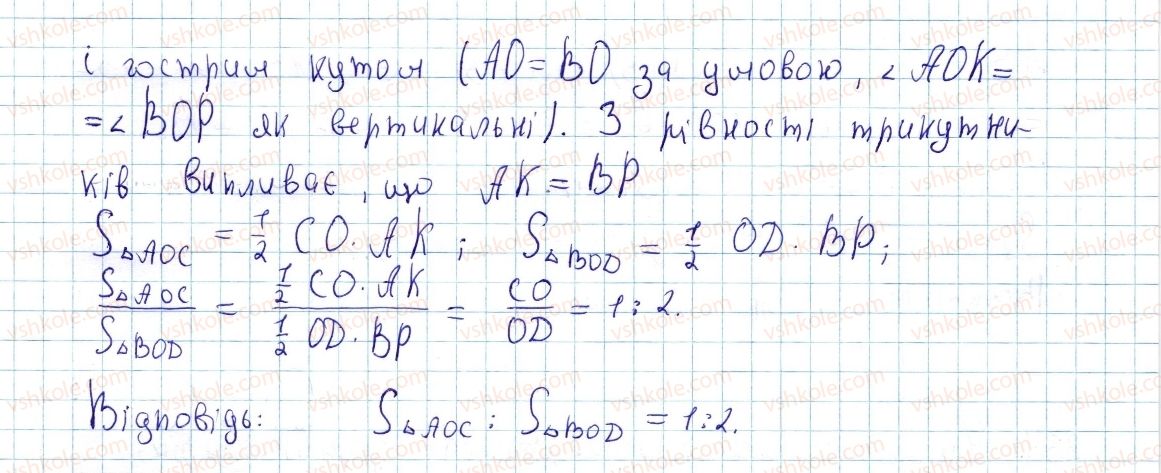 і гострим кутом (AO = BO за умовою, ∠ AOK =
= ∠ BOP як вертикальні). З рівності трикутни-
ків випливає, що AK = BP
S△AOC = 1/2 CO · AK ; S△BOD = 1/2 OD · BP;
S△AOC / S△BOD = (1/2 CO · AK) / (1/2 OD · BP) = CO / OD = 1 : 2.
Відповідь: S△AOC : S△BOD = 1 : 2.